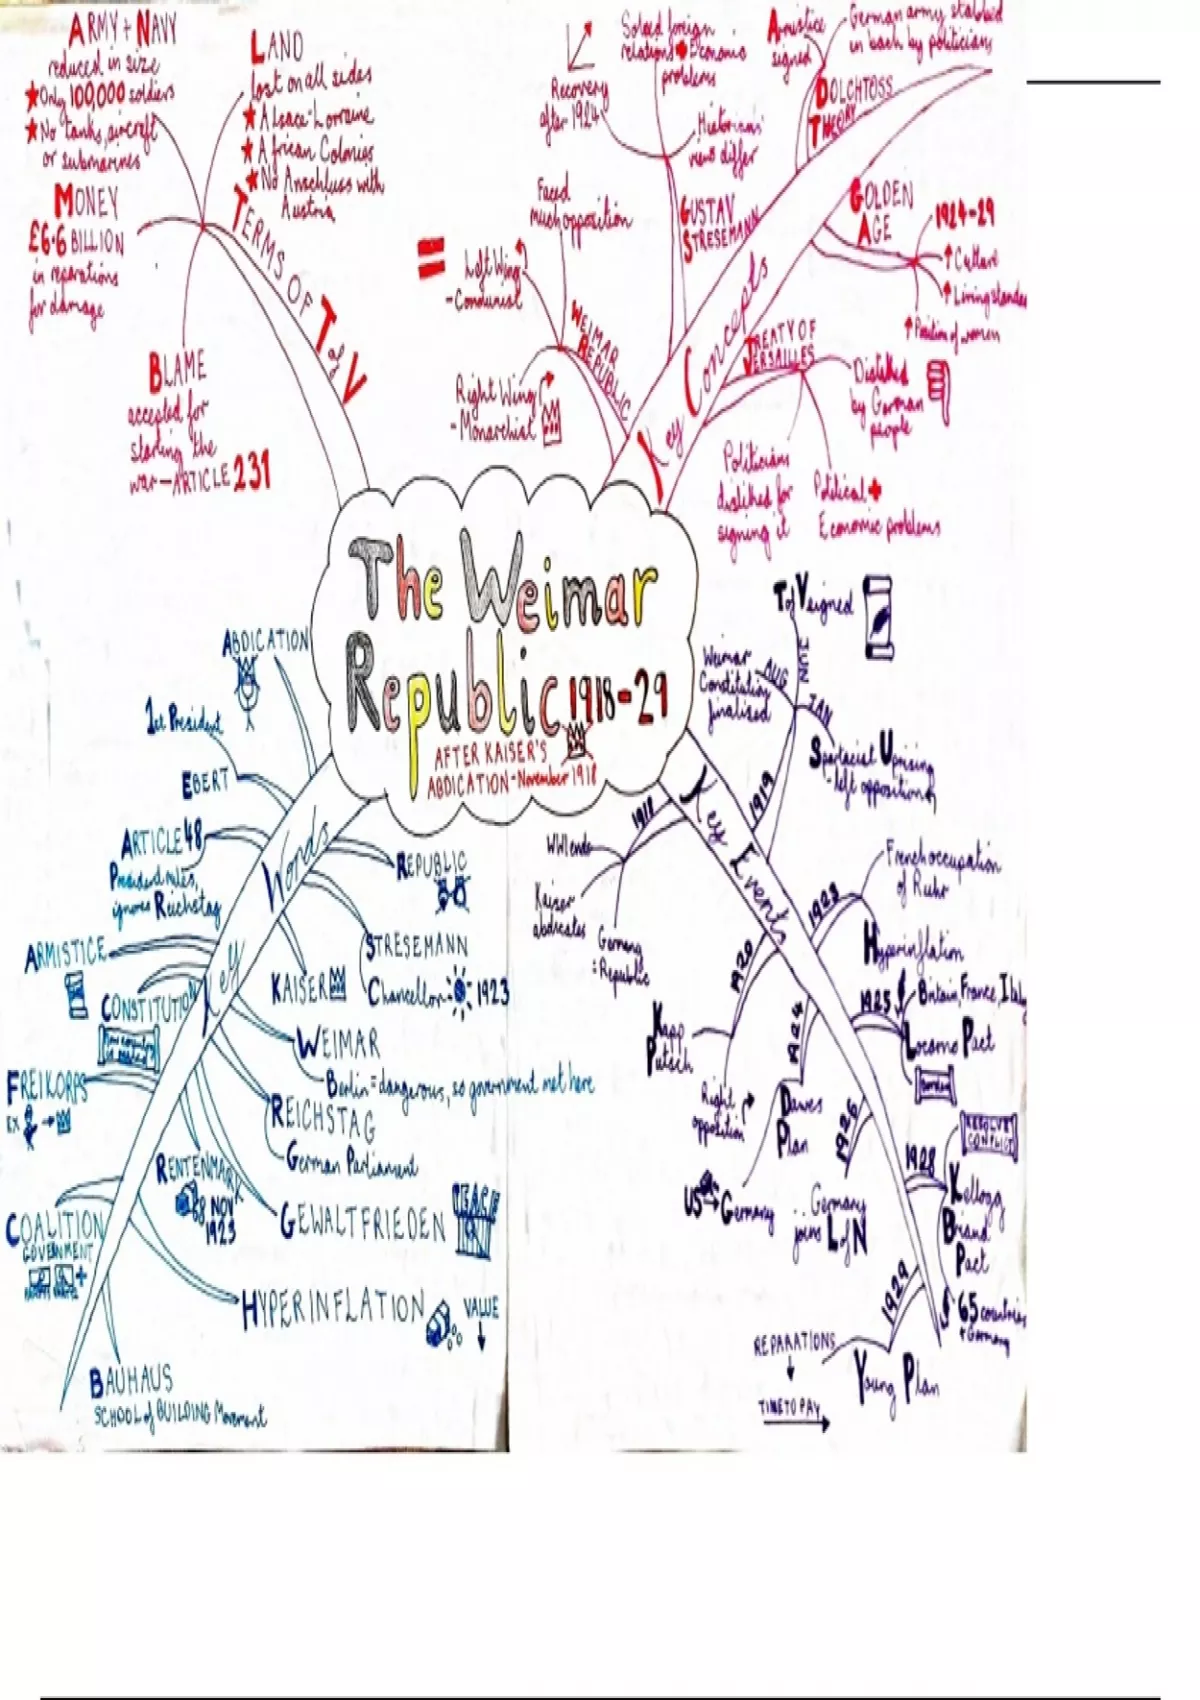 The Weimar
Republic 1918-29
AFTER KAISER'S
ABDICATION - November 1918
TERMS OF T of V
ARMY + NAVY
reduced in size
Only 100,000 soldiers
No tanks, aircraft
or submarines
LAND
lost on all sides
Alsace-Lorraine
African Colonies
No Anschluss with
Austria
MONEY
£6.6 BILLION
in reparations
for damage
BLAME
accepted for
starting the
war - ARTICLE 231
Key Concepts
WEIMAR
REPUBLIC
Faced
much opposition
Left Wing?
- Communist
Right Wing
- Monarchist
GUSTAV
STRESEMANN
Recovery
after 1924
Solved foreign
relations + Economic
problems
Historians'
views differ
DOLCHTOSS
THEORY
Armistice
signed
German army stabbed
in back by politicians
GOLDEN
AGE
1924-29
Culture
Living standa
Position of women
TREATY OF
VERSAILLES
Disliked
by German
people
Politicians
disliked for
signing it
Political +
Economic problems
Key Events
1918
WWI ends
Kaiser
abdicates
Germany
= Republic
1919
JAN
Spartacist Uprising
- left opposition
JUN
T of V signed
AUG
Weimar
Constitution
finalised
1920
Kapp
Putsch
Right
opposition
1923
French occupation
of Ruhr
Hyperinflation
1924
Dawes
Plan
US → Germany
1925
Britain, France, Italy
Locarno Pact
1926
Germany
joins L of N
1928
Kellogg
Briand
Pact
RESOLVE
CONFLICT
65 countries
+ Germany
1929
Young Plan
REPARATIONS
TIME TO PAY
Key Words
ABDICATION
1st President
EBERT
ARTICLE 48
President rules,
ignores Reichstag
ARMISTICE
CONSTITUTION
FREIKORPS
EX
COALITION
GOVERNMENT
BAUHAUS
SCHOOL of BUILDING Movement
REPUBLIC
STRESEMANN
Chancellor 1923
KAISER
WEIMAR
Berlin = dangerous, so government met here
REICHSTAG
German Parliament
RENTENMARK
NOV
1923
GEWALTFRIEDEN
PEACE
HYPERINFLATION
VALUE